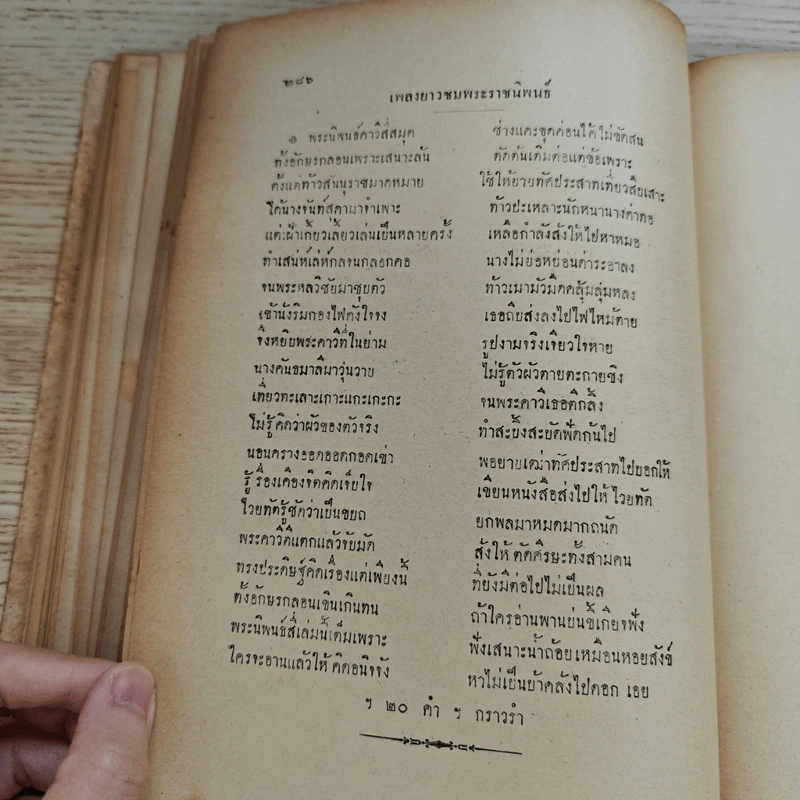 ๒๘๖
เพลงยาวชมพระราชนิพนธ์
๏ พระนิพนธ์คาวีสี่สมุด ช่างแคะขุดค่อนได้ไม่ขัดสน
ทั้งอักษรกลอนเพราะเสนาะล้น คัดต้นเติมต่อแต่ข้อเพราะ
ตั้งแต่ท้าวสันนุราชมาดหมาย ใช้ให้ยายทัศประสาทเที่ยวสืบเสาะ
ได้นางจันท์สุดามาจำเพาะ ท้าวปะเหลาะนักหนานางด่าตอ
แต่เฝ้าเกี้ยวเลี้ยวเล่นเป็นหลายครั้ง เหลือกำลังสั่งให้ไปหาหมอ
ทำเสน่ห์เล่ห์กลจนกลอกคอ นางไม่ย่อหย่อนด่าระอาลง
จนพระหลวิชัยมาชุบตัว ท้าวเมามัวมืดคลุ้มลุ่มหลง
เข้านั่งริมกองไฟตั้งใจจง เธอถีบส่งลงไปไฟไหม้ตาย
จึงหยิบพระคาวีที่ในย่าม รูปงามจริงเจียวใจหาย
นางคันธมาลีมาวุ่นวาย ไม่รู้ตัวผัวตายตะกายชิง
เที่ยวทะเลาะเกาะแกะเกะกะ จนพระคาวีเธอตีกลิ้ง
ไม่รู้คิดว่าผัวของตัวจริง ทำสะบิ้งสะบัดพัดกันไป
นอนครางออดออดกอดเข่า พอยายเฒ่าทัศประสาทไปบอกให้
รู้เรื่องเคืองจิตคิดเจ็บใจ เขียนหนังสือส่งไปให้ไวยทัต
ไวยทัตรู้ชัดว่าเป็นขบถ ยกพลมาหมดมากถนัด
พระคาวีตีแตกแล้วจับมัด สั่งให้ตัดศีรษะทั้งสามคน
ทรงประดิษฐ์คิดเรื่องแต่เพียงนี้ ที่ยังมีต่อไปไม่เป็นผล
ทั้งอักษรกลอนเขินเกินทน ถ้าใครอ่านพานย่นขี้เกียจฟัง
พระนิพนธ์สี่เล่มนี้เต็มเพราะ ฟังเสนาะน้ำถ้อยเหมือนหอยสังข์
ใครจะอ่านแล้วให้คิดอนิจจัง หาไม่เป็นบ้าคลั่งไปดอก เอย
ฯ ๒๐ คำ ฯ กราวรำ